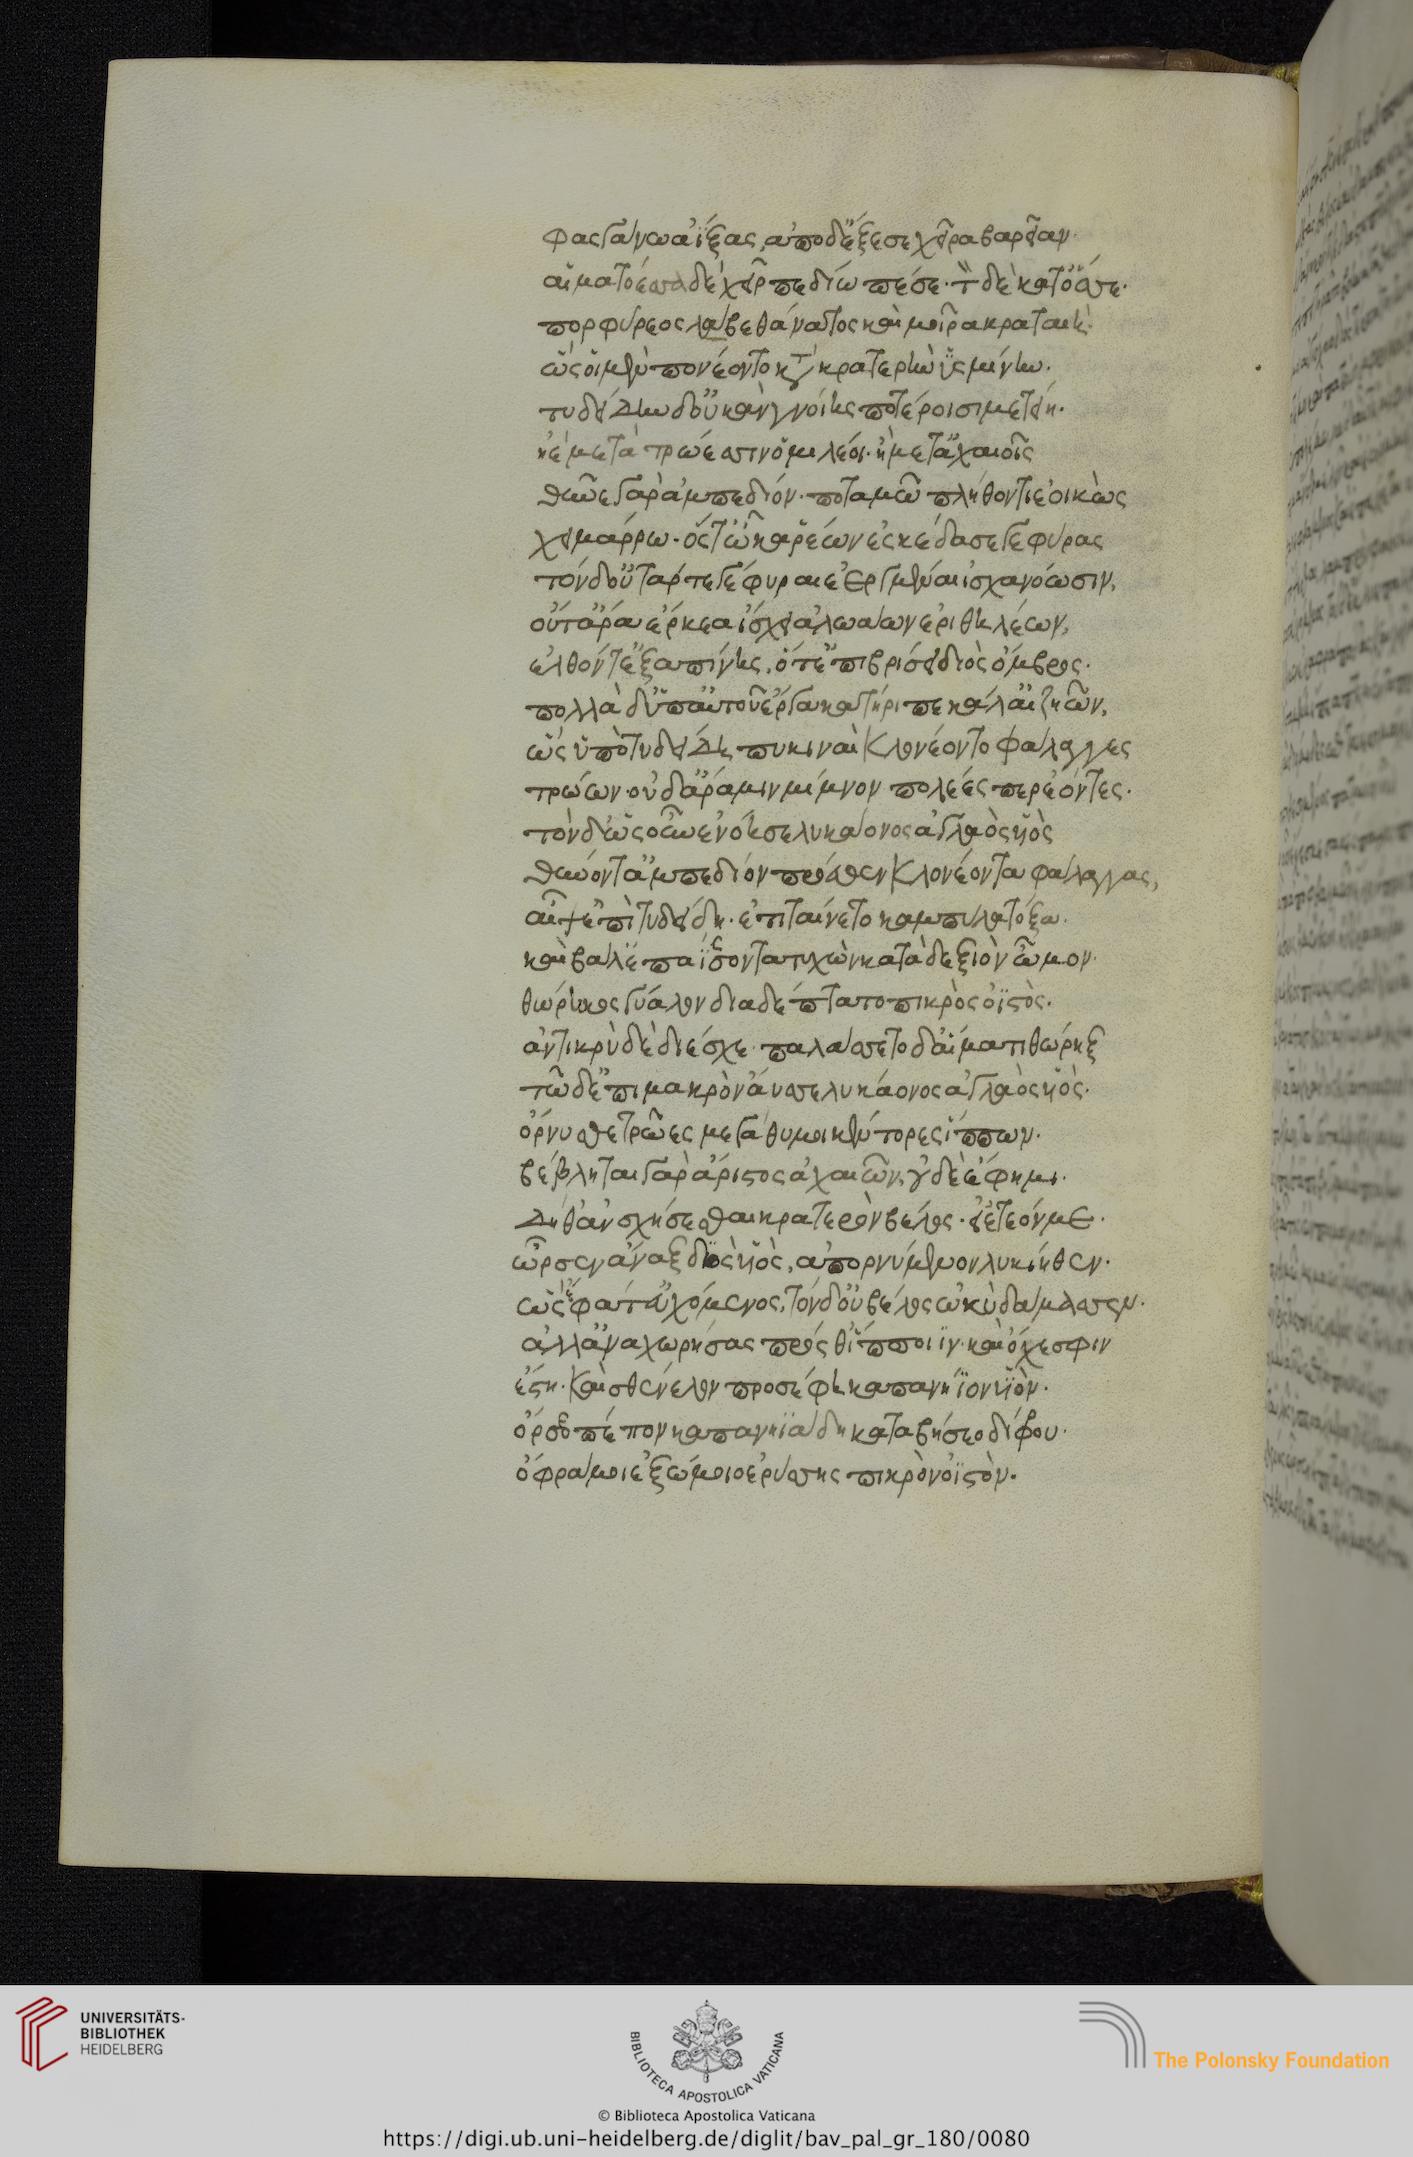 φασγάνω αΐξας, ἀπὸ δ' ἔξεσε χεῖρα βαρεῖαν·
αἱματόεσσα δὲ χεὶρ πεδίω πέσε· τὸν δὲ κατ' ὄσσε·
πορφύρεος λάβε θάνατος καὶ μοῖρα κραταιή·
ὣς οἱ μὲν πονέοντο κατὰ κρατερὴν ὑσμίνην·
τυδείδην δ' οὐκ ἂν γνοίης ποτέροισι μετείη·
ἠὲ μετὰ τρώεσσιν ὁμιλέοι· ἢ μετ' ἀχαιοῖς
θῦνε γὰρ ἂμ πεδίον· ποταμῶ πλήθοντι ἐοικὼς
χειμάρρω· ὅς τ' ὦκα ῥέων ἐκέδασσε γεφύρας
τὸν δ' οὔτ' ἄρ τε γέφυραι ἐεργμέναι ἰσχανόωσιν,
οὔτ' ἄρα ἕρκεα ἴσχει ἀλωάων ἐριθηλέων,
ἐλθόντ' ἐξαπίνης, ὅτ' ἐπιβρίσει διὸς ὄμβρος·
πολλὰ δ' ὑπ' αὐτοῦ ἔργα κατήριπε κάλ' αἰζηῶν,
ὣς ὑπὸ τυδείδη πυκιναὶ κλονέοντο φάλαγγες
τρώων· οὐδ' ἄρα μιν μίμνον πολέες περ ἐόντες·
τὸν δ' ὡς οὖν ἐνόησε λυκάονος ἀγλαὸς υἱὸς
θύνοντ' ἂμ πεδίον πρόσθεν κλονέοντα φάλαγγας,
αἶψ' ἐπὶ τυδείδη· ἐπιταίνετο καμπύλα τόξα·
καὶ βάλ' ἐπαΐσσοντα τυχὼν κατὰ δεξιὸν ὦμον·
θώρηκος γύαλον διὰ δ' ἔπτατο πικρὸς ὀϊστὸς·
ἀντικρὺ δὲ διέσχε· παλάσσετο δ' αἵματι θώρηξ
τῶ δ' ἐπὶ μακρὸν ἄυσε λυκάονος ἀγλαὸς υἱὸς·
ὄρνυσθε τρῶες μεγάθυμοι κέντορες ἵππων·
βέβληται γὰρ ἄριστος ἀχαιῶν, οὐδὲ ἕ φημι·
δήθ' ἀνσχήσεσθαι κρατερὸν βέλος· εἰ ἐτεόν με·
ὦρσεν ἄναξ διὸς υἱὸς, ἀπορνύμενον λυκίηθεν·
ὣς ἔφατ' εὐχόμενος, τὸν δ' οὐ βέλος ὠκὺ δάμασσεν·
ἀλλ' ἀναχωρήσας πρόσθ' ἵπποιϊν· καὶ ὄχεσφιν
ἔστη· καὶ σθένελον προσέφη καπανήϊον υἱὸν·
ὄρσο πέπον καπανηϊάδη καταβήσεο δίφρου·
ὄφρα μοι ἐξ ὤμοιο ἐρύσσης πικρὸν ὀϊστὸν·
UNIVERSITÄTS-
BIBLIOTHEK
HEIDELBERG
BIBLIOTECA APOSTOLICA VATICANA
The Polonsky Foundation
© Biblioteca Apostolica Vaticana
https://digi.ub.uni-heidelberg.de/diglit/bav_pal_gr_180/0080